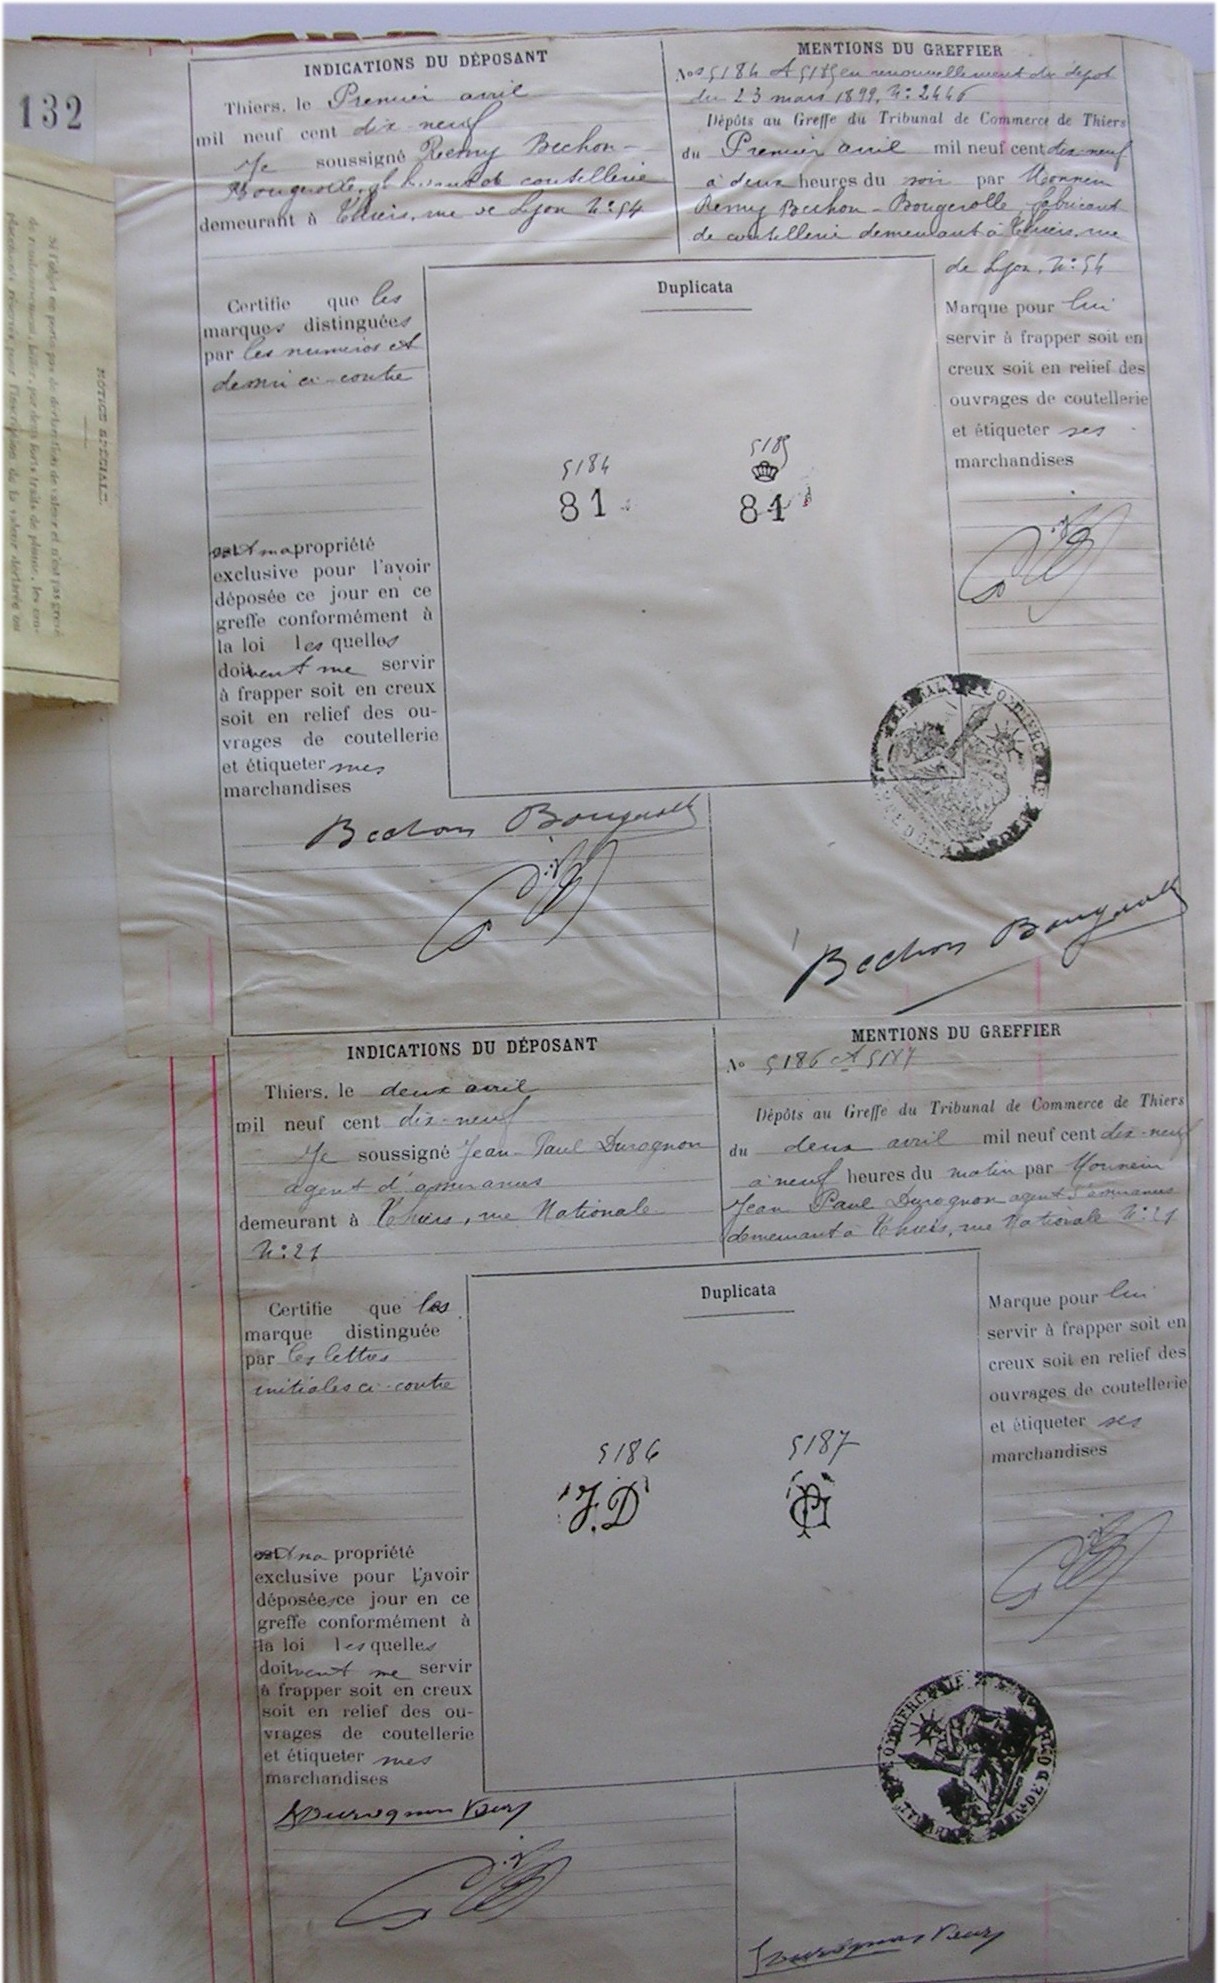 132
INDICATIONS DU DÉPOSANT
Thiers, le Premier avril
mil neuf cent dix-neuf
Je soussigné Remy Bechon-
Bougerolle, fabricant de coutellerie
demeurant à Thiers, rue de Lyon N° 54
Certifie que les
marques distinguées
par les numéros et
dessin ci-contre
sont ma propriété
exclusive pour l'avoir
déposée ce jour en ce
greffe conformément à
la loi lesquelles
doivent me servir
à frapper soit en creux
soit en relief des ou-
vrages de coutellerie
et étiqueter mes
marchandises
Bechon Bougerolle
MENTIONS DU GREFFIER
Nos 5184 et 5185 en renouvellement du dépôt
du 23 mars 1899, N° 2446
Dépôts au Greffe du Tribunal de Commerce de Thiers
du Premier avril mil neuf cent dix-neuf
à deux heures du soir par Monsieur
Remy Bechon-Bougerolle, fabricant
de coutellerie demeurant à Thiers, rue
de Lyon, N° 54
Duplicata
5184
81
5185
81
Marque pour lui
servir à frapper soit en
creux soit en relief des
ouvrages de coutellerie
et étiqueter ses
marchandises
Bechon Bougerolle
INDICATIONS DU DÉPOSANT
Thiers, le deux avril
mil neuf cent dix-neuf
Je soussigné Jean-Paul Durognon
agent d'assurances
demeurant à Thiers, rue Nationale
N° 21
Certifie que les
marque distinguée
par les lettres
initiales ci-contre
sont ma propriété
exclusive pour l'avoir
déposées ce jour en ce
greffe conformément à
la loi lesquelles
doivent me servir
à frapper soit en creux
soit en relief des ou-
vrages de coutellerie
et étiqueter mes
marchandises
MENTIONS DU GREFFIER
No 5186 et 5187
Dépôts au Greffe du Tribunal de Commerce de Thiers
du deux avril mil neuf cent dix-neuf
à neuf heures du matin par Monsieur
Jean Paul Durognon agent d'assurances
demeurant à Thiers, rue Nationale N° 21
Duplicata
5186
J.D
5187
Marque pour lui
servir à frapper soit en
creux soit en relief des
ouvrages de coutellerie
et étiqueter ses
marchandises